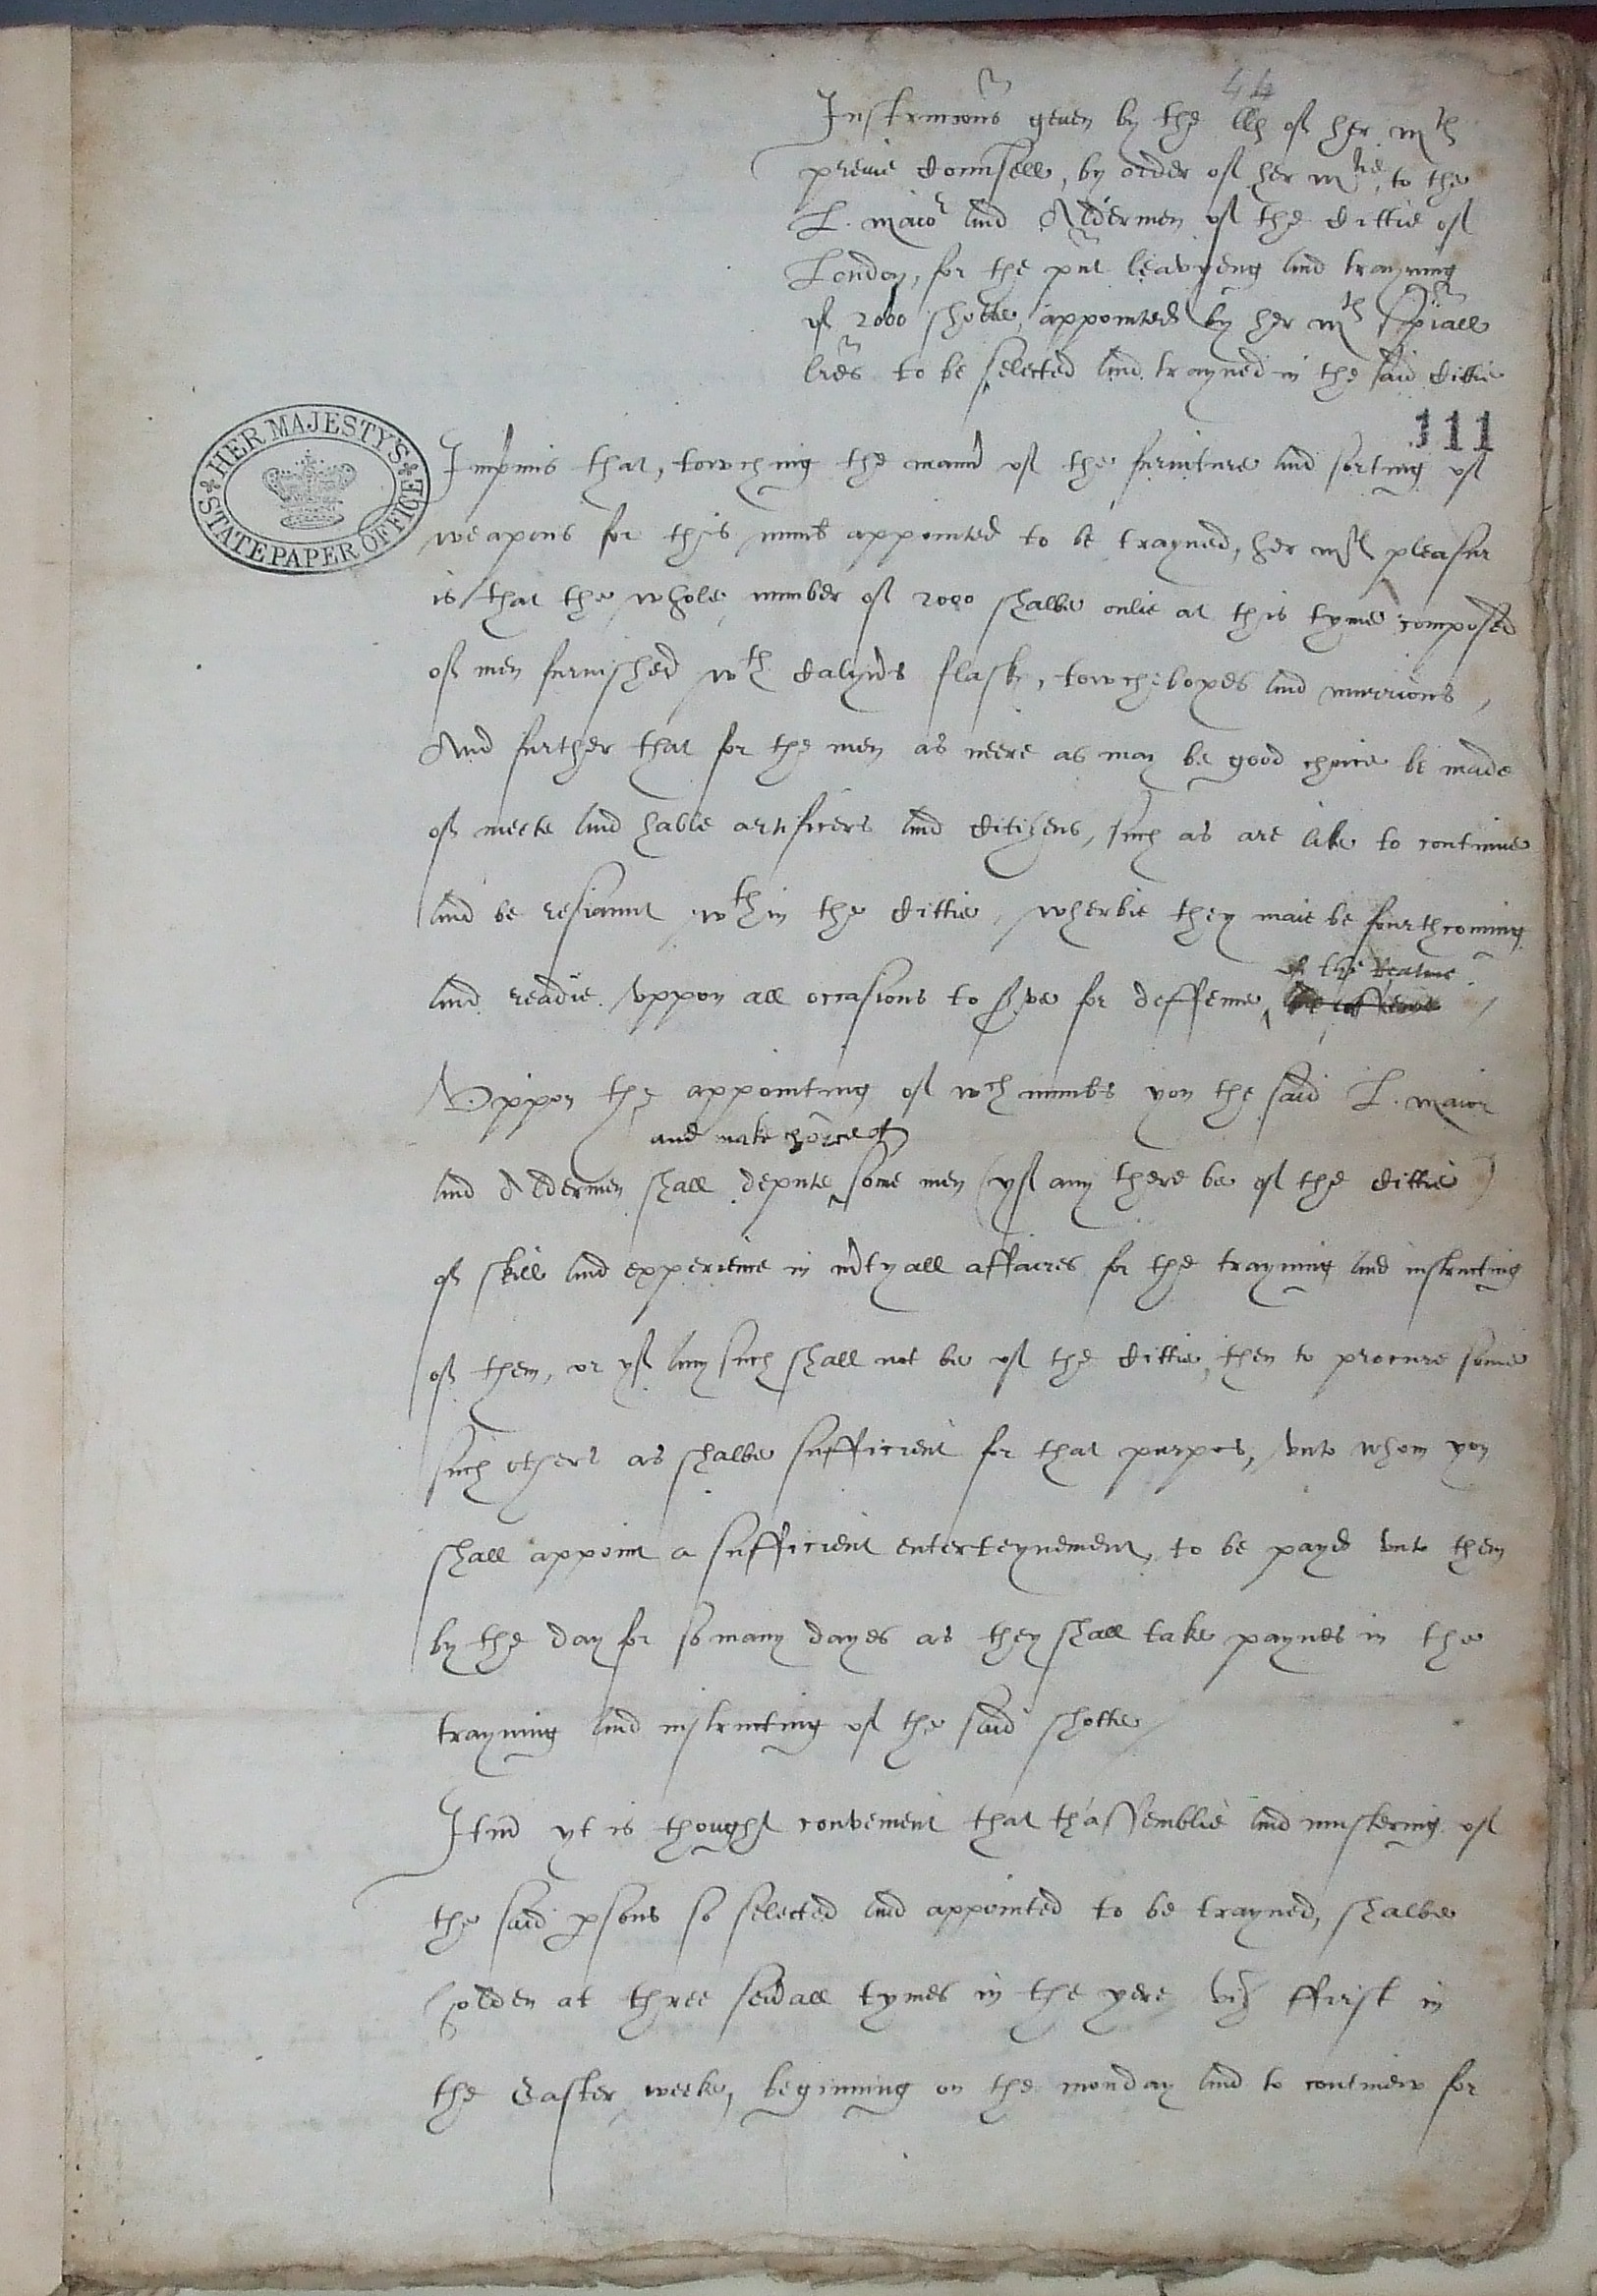 44
Instruccons geven by the LLs of her mts
previe Counsell, by order of her mtie, to the
L. maior and Aldermen of the Cittie of
London, for the pnt leavyeng and trayning
of 2000 shotte, appointed by her mts spiall
lres to be selected and trayned in the said Cittie
111
HER MAJESTY'S
STATE PAPER OFFICE
Inprimis that, towching the mannr of the furniture and sorting of
weapons for this numbr appointed to be trayned, her mats pleasur
is that the whole number of 2000 shalbe onlie at this tyme composed
of men furnished wth Calyvrs flasks, towcheboxes and murrions,
And further that for the men as neere as may be good choice be made
of meete and hable artificers and Citizens, such as are like to continue
and be resiaunt wthin the Cittie, wherbie they maie be fourthcoming
of the Realme
and readie uppon all occasions to srve for deffence /
Uppon the appointing of wch numbr you the said L. maior
and make choice of
and Aldermen shall depute some men (yf any there be of the Cittie)
of skill and experience in mrtyall affaires for the trayning and instructing
of them, or yf any such shall not be of the Cittie, then to procure some
such others as shalbe sufficient for that purpos, unto whom you
shall appoint a sufficient enterteynement, to be payd unto them
by the day for so many dayes as they shall take paynes in the
trayning and instructing of the said shotte /
Itm yt is thought convenient that th'assemblie and mustering of
the said psons so selected and appointed to be trayned, shalbe
holden at three sevrall tymes in the yere viz ffirst in
the Easter weeke, beginning on the monday and to continew for